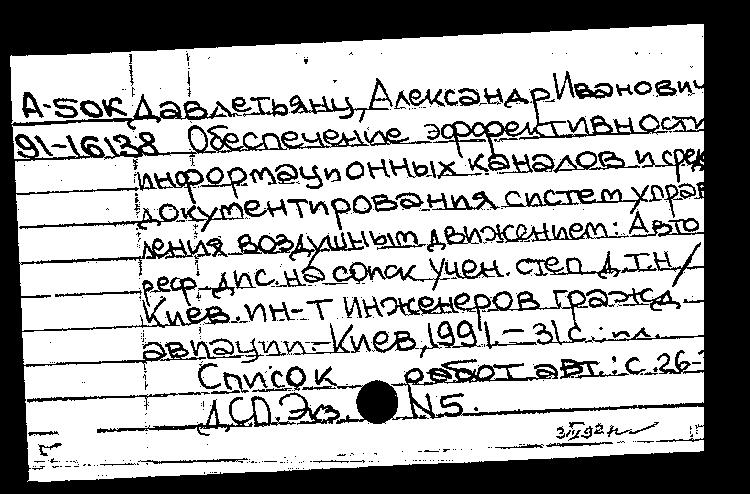 А-50К Давлетьянц, Александр Иванович
91-16138 Обеспечение эффективности
информационных каналов и сред
документирования систем управ
ления воздушным движением: Авто
реф. дис. на соиск учен. степ Д.Т.Н/
Киев. ин-т инженеров гражд.
авиации.-Киев, 1991.-31 с.: ил.
Список работ авт.: с. 26-
ДСП. Экз. N5.